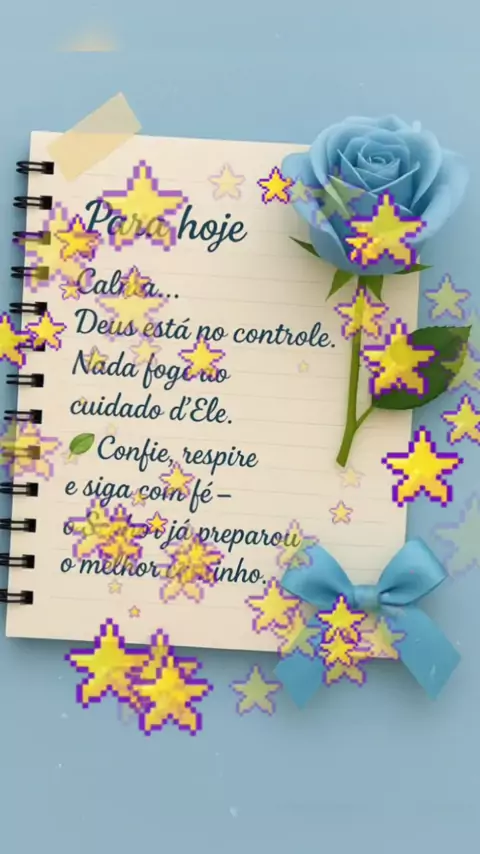 Para hoje
Calma...
Deus está no controle.
Nada foge ao
cuidado d'Ele.
Confie, respire
e siga com fé –
o Senhor já preparou
o melhor caminho.